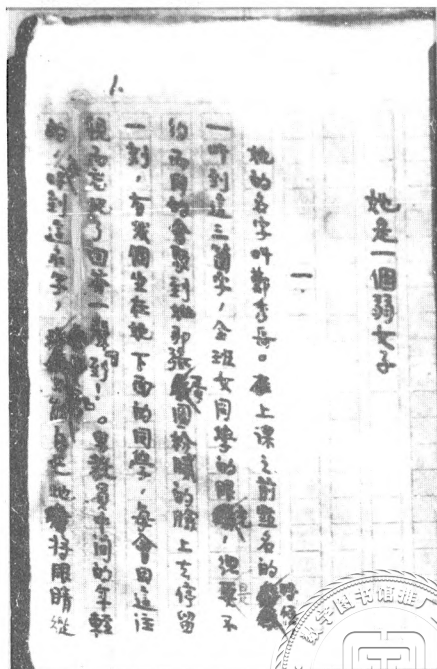 她是一個弱女子
一
她的名字叫鄭秀岳。在上课之前點名的時候
一叫到這三箇字，全班女同學的眼，總要不
約而同的會聚到她那張蛋圓粉膩的臉上去停留
一刻，有幾個坐在她下面的同學，每會因這注
視而忘記了回答一聲“到！”。男教員中間的年輕
的，叫到這名字，也不能自已地將眼睛從
1.
数字图书馆推广